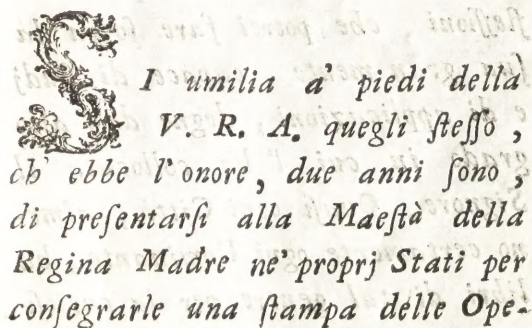 SI umilia a' piedi della
V. R. A. quegli ſteſſo,
ch' ebbe l'onore, due anni ſono,
di preſentarſi alla Maeſtà della
Regina Madre ne' proprj Stati per
conſegrarle una ſtampa delle Ope-